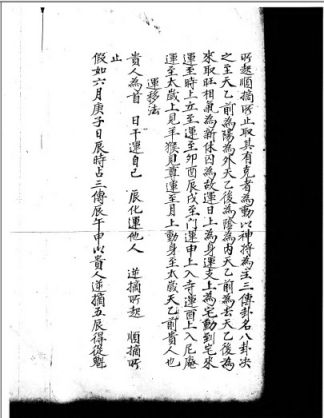 所起順摘所止取其有克者為動以神將為主三傳卦名八卦決
之至天乙前為陽為外天乙後為陰為內天乙前為去天乙後為
來取旺相氣為新休囚為故運日上為身運支上為宅動到宅來
運至時上立至運至卯酉辰戌至門運申上入寺運酉上入尼庵
運至太歲上見羊猴見尊運至月上動身至太歲天乙前貴人也
運移法
貴人為首 日干運自己 辰化運他人 逆摘所起 順摘所
止
假如六月庚子日辰時占三傳辰午申以貴人逆摘五辰得從魁